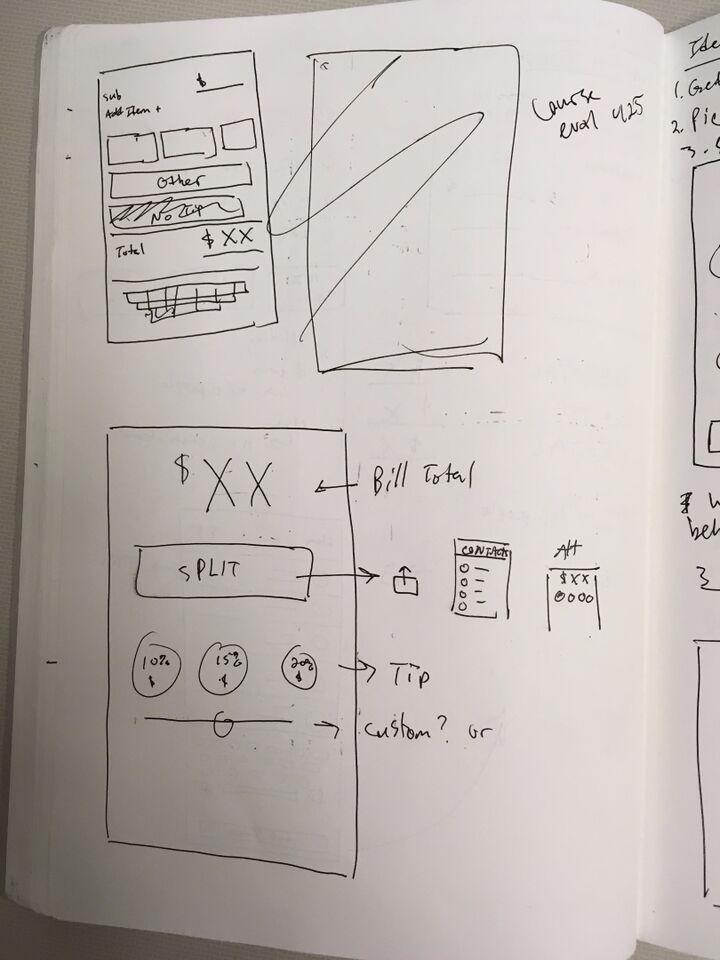 Sub $
Add Item +
Other
No Tip
Total $ XX
Course
eval 4.25
$ XX
Bill Total
SPLIT
CONTACTS
Alt
$XX
10% $
15% $
20% $
Tip
custom? or
1. Get
2. Pic
3.
3